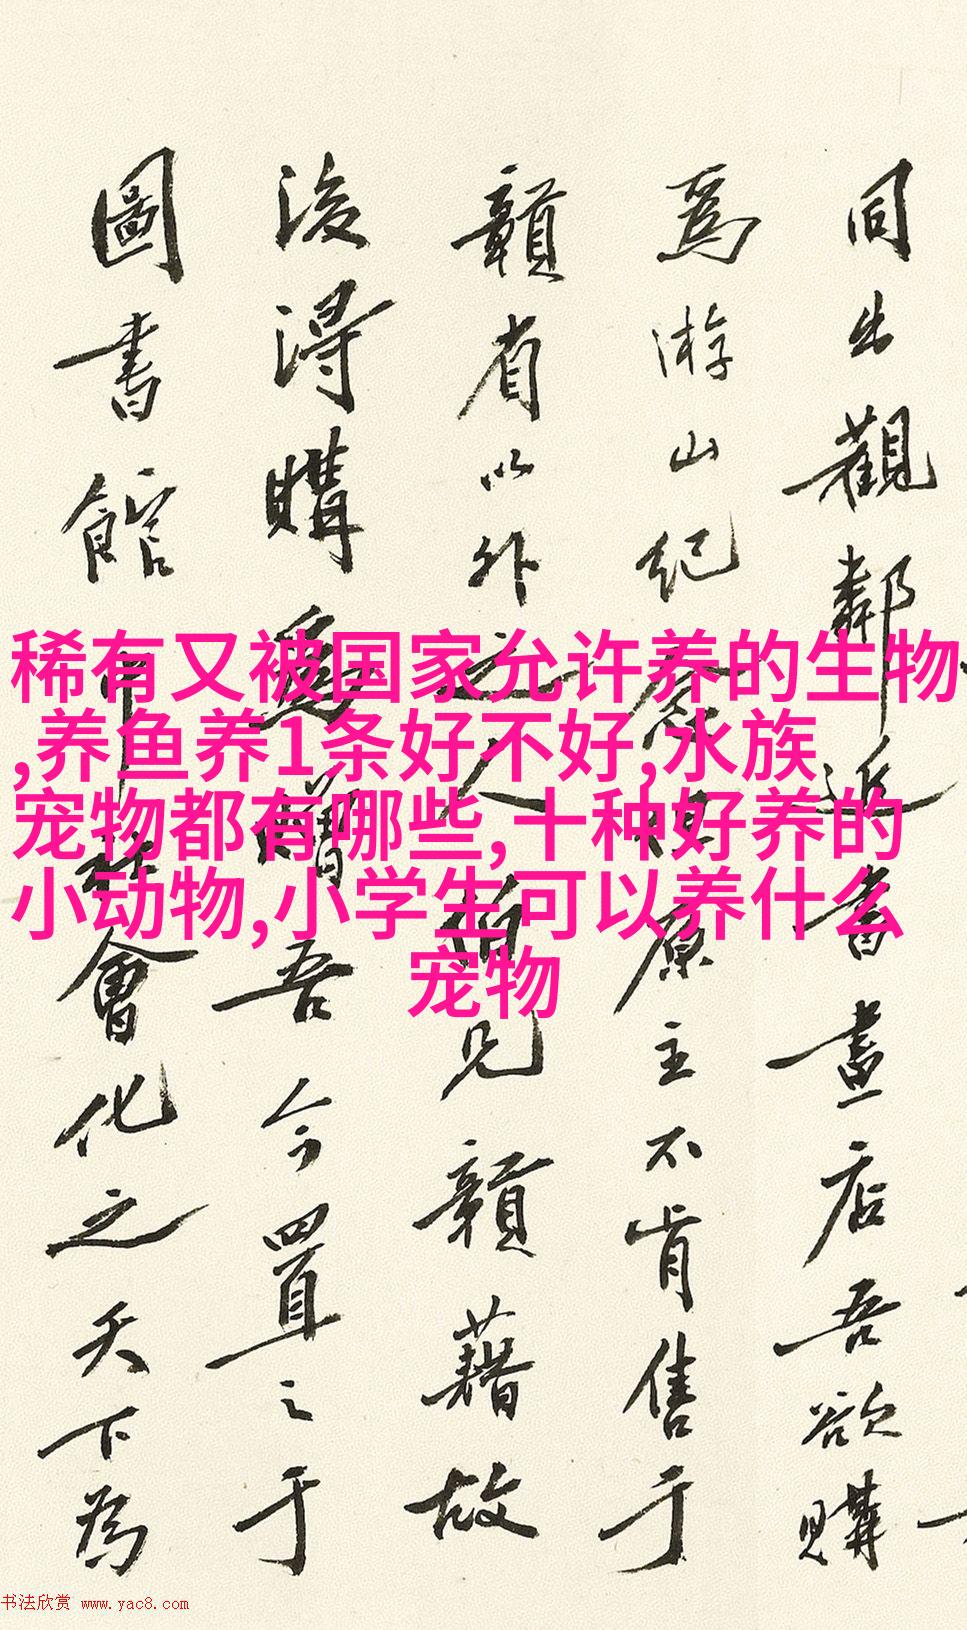 同出觀鄰近書畫店吾欲購
爲游山紀念但原主不肯售于
贛省以外之人頃見贛藉故
後得購爲贈吾今置之于
圖書館中社會化之天下爲
稀有又被国家允许养的生物
,养鱼养1条好不好,水族
宠物都有哪些,十种好养的
小动物,小学生可以养什么
宠物
书法欣赏 www.yac8.com